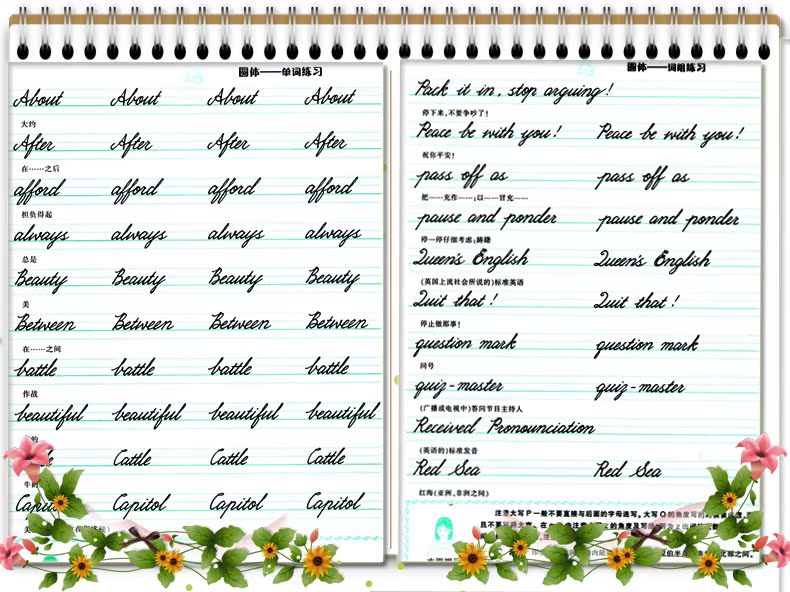 圆体——单词练习
About About About About
大约
After After After After
在……之后
afford afford afford afford
担负得起
always always always always
总是
Beauty Beauty Beauty Beauty
美
Between Between Between Between
在……之间
battle battle battle battle
作战
beautiful beautiful beautiful beautiful
的
Cattle Cattle Cattle
牛
Capitol Capitol Capitol
美
圆体——词组练习
Pack it in, stop arguing!
停下来,不要争吵了!
Peace be with you! Peace be with you!
祝你平安!
pass off as pass off as
把……充作……;以……冒充……
pause and ponder pause and ponder
停一停仔细考虑;踌躇
Queen's English Queen's English
(英国上流社会所说的)标准英语
Quit that! Quit that!
停止做那事!
question mark question mark
问号
quiz-master quiz-master
(广播或电视中)答问节目主持人
Received Pronounciation
(英语的)标准发音
Red Sea Red Sea
红海(亚洲、非洲之间)
注意大写P一般不要直接与后面的字母连写。大写Q的角度写的
且不要写得太